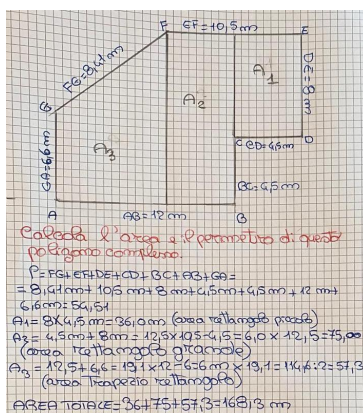 F EF=10,5m E
FG=8,41m
DE=8m
A1
A2
G
GA=6,6m
A3
C CD=4,5m D
BC=4,5m
A AB=12m B
Calcola l'area e il perimetro di questo
poligono complesso.
P=FG+EF+DE+CD+BC+AB+GA=
=8,41m+10,5m+8m+4,5m+4,5m+12m+
6,6m=54,51
A1=8×4,5m=36,0m (area rettangolo piccolo)
A2=4,5m+8m=12,5×10,5-4,5=6,0m×12,5=75,00
(area rettangolo grande)
A3=12,5+6,6=19,1×12-6=6m×19,1=114,6:2=57,3
(area trapezio rettangolo)
AREA TOTALE=36+75+57,3=168,3m